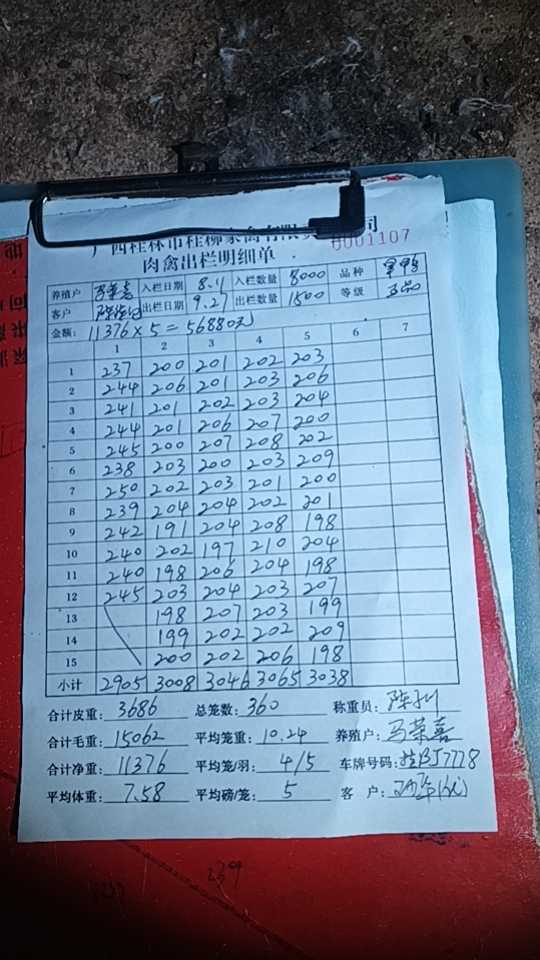 广西桂林市桂柳家禽有限责任公司
0001107
肉禽出栏明细单
养殖户 马荣喜 入栏日期 8.11 入栏数量 8000 品种
客户 出栏日期 9.27 出栏数量 1500 等级
金额: 11376 × 5 = 56880元
1 2 3 4 5 6 7
1 237 200 201 202 203
2 244 206 201 203 206
3 241 201 202 203 204
4 244 201 206 207 200
5 245 200 207 208 202
6 238 203 200 203 209
7 250 202 203 201 200
8 239 204 204 202 201
9 242 191 204 208 198
10 240 202 197 210 204
11 240 198 206 204 198
12 245 203 204 203 207
13 198 207 203 199
14 199 202 202 209
15 200 202 206 198
小计 2905 3008 3046 3065 3038
合计皮重: 3686 总笼数: 360 称重员:
合计毛重: 15062 平均笼重: 10.24 养殖户: 马荣喜
合计净重: 11376 平均笼/羽: 4/5 车牌号码: 桂BJ7778
平均体重: 7.58 平均磅/笼: 5 客 户:
239